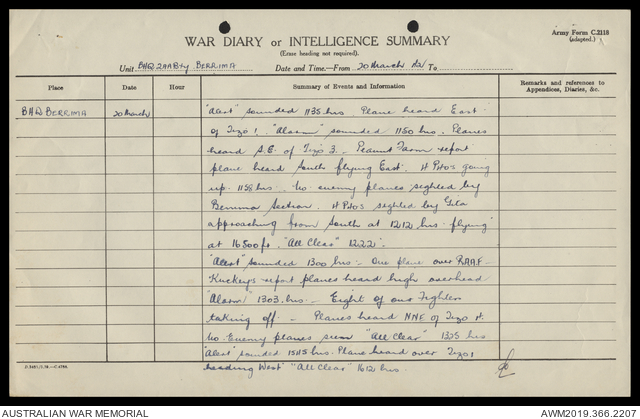 WAR DIARY or INTELLIGENCE SUMMARY
(Erase heading not required).
Army Form C.2118
(adapted.)
Unit BHQ 2AABty BERRIMA Date and Time—From 20 March 42 To
Place Date Hour Summary of Events and Information Remarks and references to Appendices, Diaries, &c.
BHQ BERRIMA 20 March "Alert" sounded 1135 hrs Plane heard East
of Tizo 1. "Alarm" sounded 1150 hrs. Planes
heard S.E. of Tizo 3. - Peanut Farm report
plane heard South flying East. 4 P40s going
up. 1158 hrs. No enemy planes sighted by
Section. 4 P40s sighted by
approaching from South at 1212 hrs flying
at 16500 ft. "All Clear" 1222.
"Alert" sounded 1300 hrs - One plane over RAAF -
report planes heard high overhead
"Alarm" 1303 hrs - Eight of our Fighters
taking off - Planes heard NNE of Tizo 4.
No Enemy planes seen "All Clear" 1325 hrs
"Alert" sounded 1545 hrs. Plane heard over Tizo 1
heading West "All Clear" 1612 hrs.
AUSTRALIAN WAR MEMORIAL
AWM2019.366.2207